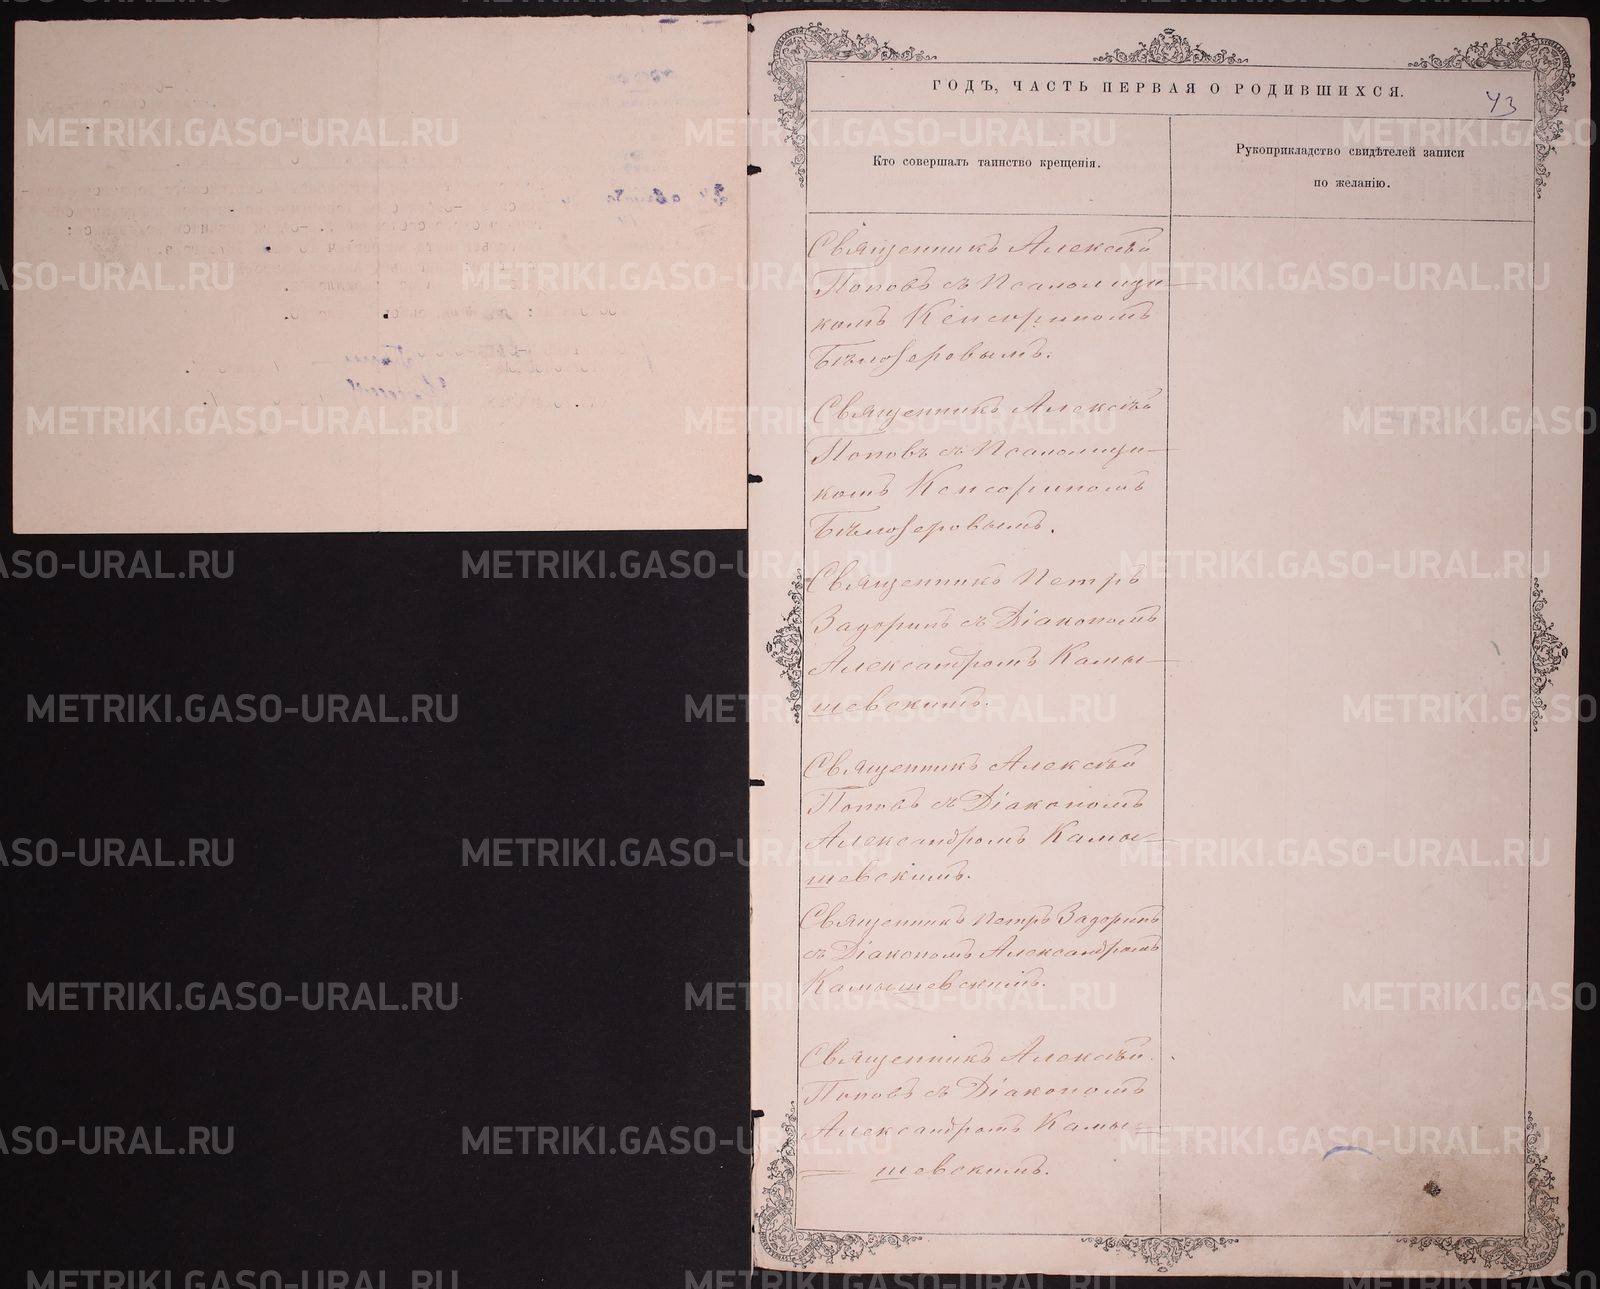 ГОДЪ, ЧАСТЬ ПЕРВАЯ О РОДИВШИХСЯ.
43
Кто совершалъ таинство крещенія.
Рукоприкладство свидѣтелей записи
по желанію.
Священникъ Алексѣй
Поповъ съ Псаломщи-
комъ Кенсориномъ
Бѣлозеровымъ.
Священникъ Алексѣй
Поповъ съ Псаломщи-
комъ Кенсориномъ
Бѣлозеровымъ.
Священникъ Петръ
Задоринъ съ Діакономъ
Александромъ Камы-
шевскимъ.
Священникъ Алексѣй
Поповъ съ Діакономъ
Александромъ Камы-
шевскимъ.
Священникъ Петръ Задоринъ
съ Діакономъ Александромъ
Камышевскимъ.
Священникъ Алексѣй
Поповъ съ Діакономъ
Александромъ Камы-
шевскимъ.
METRIKI.GASO-URAL.RU